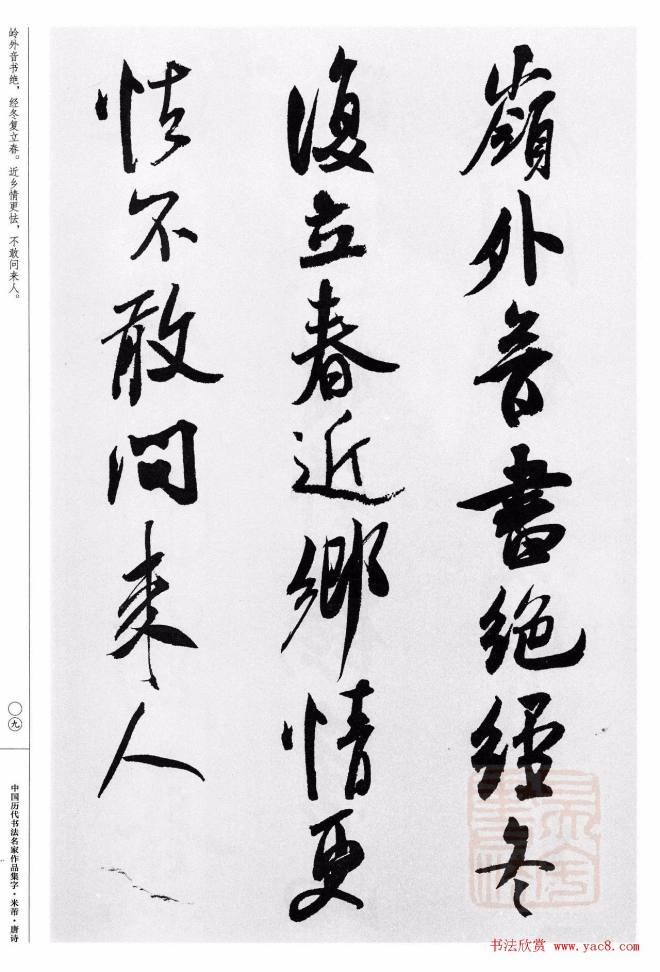 嶺外音書絶經冬
復立春近鄉情更
怯不敢問来人
岭外音书绝，经冬复立春。近乡情更怯，不敢问来人。
〇九
中国历代书法名家作品集字·米芾·唐诗
书法欣赏 www.yac8.com